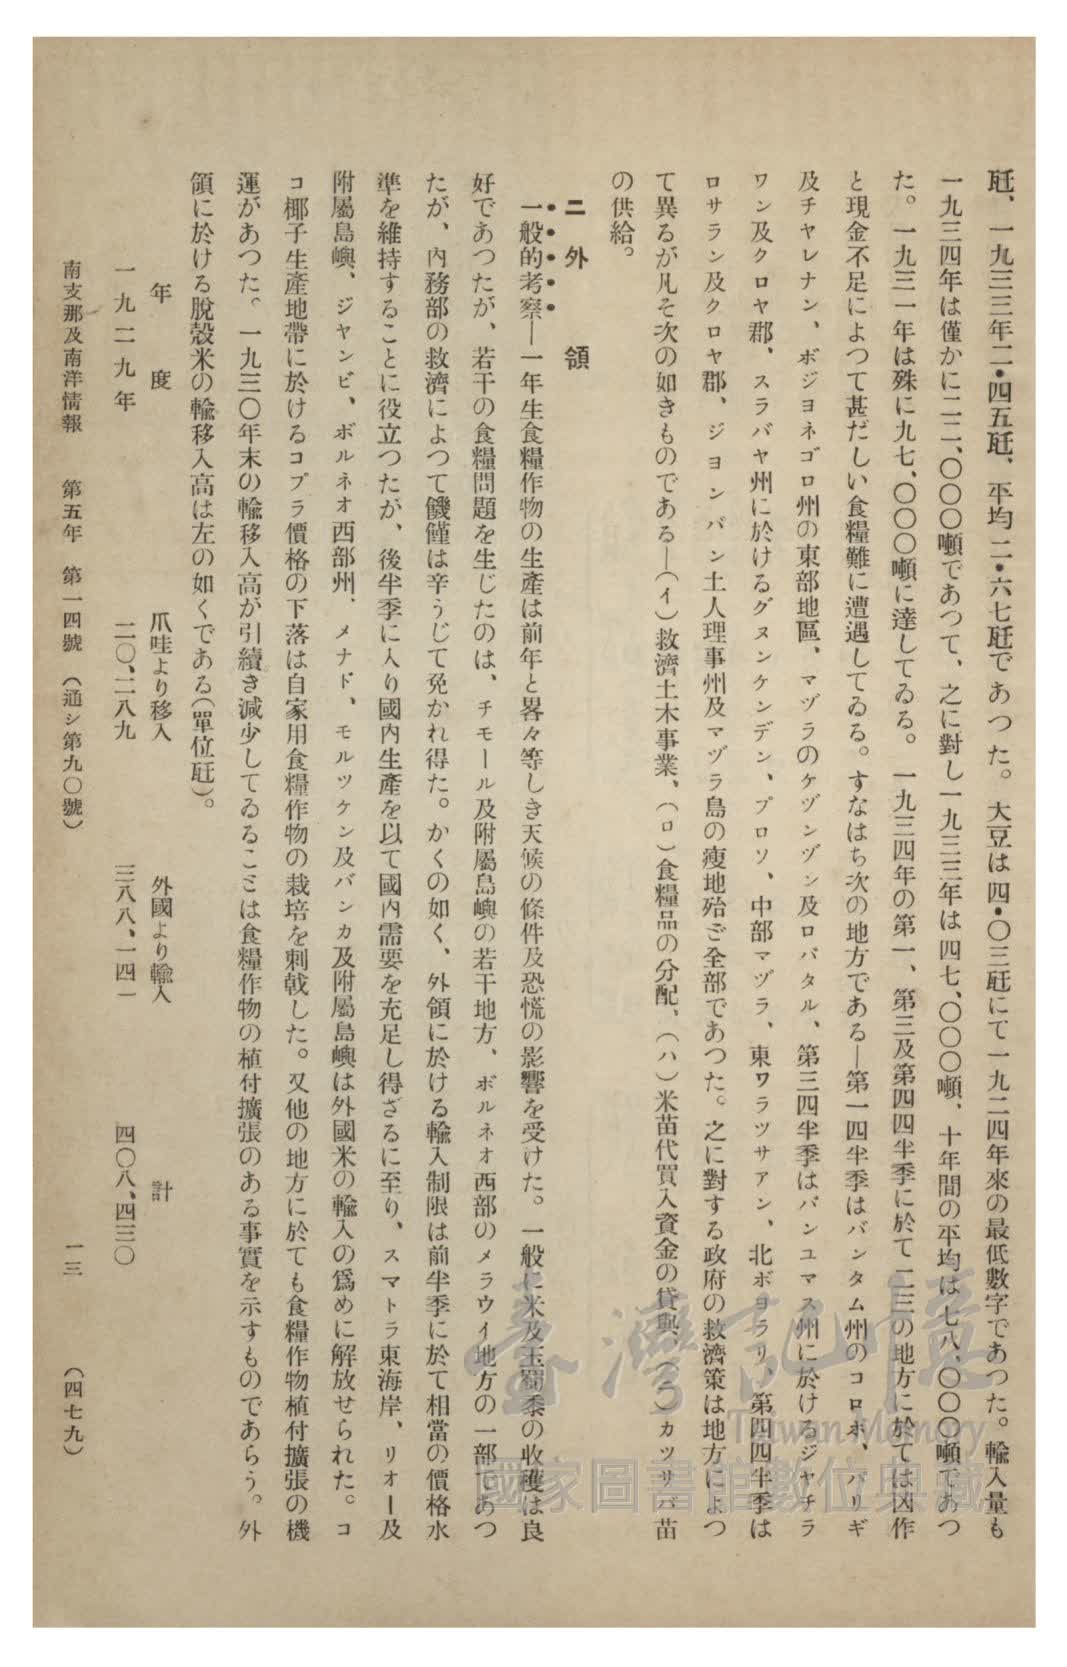 瓩、一九三三年二・四五瓩、平均二・六七瓩であつた。大豆は四・〇三瓩にて一九二四年來の最低數字であつた。輸入量も
一九三四年は僅かに二二、〇〇〇噸であつて、之に對し一九三三年は四七、〇〇〇噸、十年間の平均は七八、〇〇〇噸であつ
た。一九三一年は殊に九七、〇〇〇噸に達してゐる。一九三四年の第一、第三及第四四半季に於て二三の地方に於ては凶作
と現金不足によつて甚だしい食糧難に遭遇してゐる。すなはち次の地方である―第一四半季はバンタム州のコロホ、パリギ
及チヤレナン、ボジヨネゴロ州の東部地區、マヅラのケヅンヅン及ロバタル、第三四半季はバンユマス州に於けるジヤチラ
ワン及クロヤ郡、スラバヤ州に於けるグヌンケンデン、プロソ、中部マヅラ、東ワラツサアン、北ボヨラリ、第四四半季は
ロサラン及クロヤ郡、ジヨンバン土人理事州及マヅラ島の瘦地殆ご全部であつた。之に對する政府の救濟策は地方によつ
て異るが凡そ次の如きものである―(イ)救濟土木事業、(ロ)食糧品の分配、(ハ)米苗代買入資金の貸與、(ニ)カツサバ苗
の供給。
二 外 領
一般的考察―一年生食糧作物の生產は前年と畧々等しき天候の條件及恐慌の影響を受けた。一般に米及玉蜀黍の收穫は良
好であつたが、若干の食糧問題を生じたのは、チモール及附屬島嶼の若干地方、ボルネオ西部のメラウイ地方の一部であつ
たが、內務部の救濟によつて饑饉は辛うじて免かれ得た。かくの如く、外領に於ける輸入制限は前半季に於て相當の價格水
準を維持することに役立つたが、後半季に入り國內生產を以て國內需要を充足し得ざるに至り、スマトラ東海岸、リオー及
附屬島嶼、ジヤンビ、ボルネオ西部州、メナド、モルツケン及バンカ及附屬島嶼は外國米の輸入の爲めに解放せられた。コ
コ椰子生產地帶に於けるコプラ價格の下落は自家用食糧作物の栽培を刺戟した。又他の地方に於ても食糧作物植付擴張の機
運があつた。一九三〇年末の輸移入高が引續き減少してゐることは食糧作物の植付擴張のある事實を示すものであらう。外
領に於ける脫穀米の輸移入高は左の如くである(單位瓩)。
年 度 爪哇より移入 外國より輸入 計
一九二九年 二〇、二八九 三八八、一四一 四〇八、四三〇
南支那及南洋情報 第五年 第一四號 (通シ第九〇號) 一三 (四七九)
臺灣記憶
Taiwan Memory
國家圖書館數位典藏